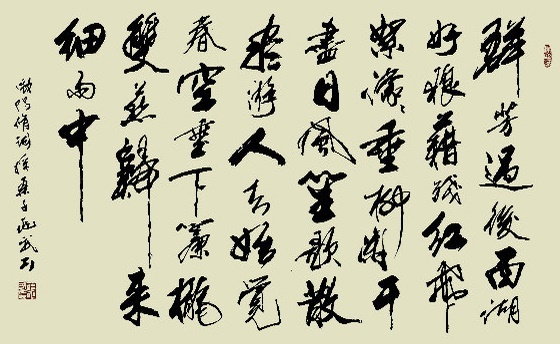 群芳過後西湖
好狼藉殘紅飛
絮濛濛垂柳闌干
盡日風笙歌散
盡游人去始覺
春空垂下簾櫳
雙燕歸來
細雨中
歐陽脩詞採桑子